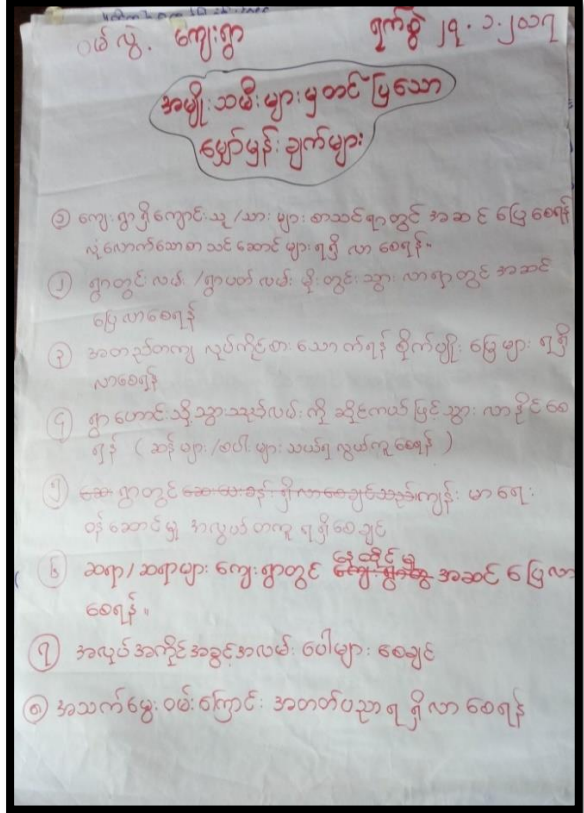 ဝယ်လွဲ. ကျေးရွာ ရက်စွဲ ၂၇.၁.၂၀၁၇
အမျိုးသမီးများမှတင်ပြသော
မျှော်မှန်းချက်များ
၁ ကျေးရွာရှိကျောင်းသူ/သားများ စာသင်ရာတွင် အဆင်ပြေစေရန်
လုံလောက်သောစာသင်ဆောင်များရရှိလာစေရန်။
၂ ရွာတွင်းလမ်း/ရွာပတ်လမ်း မိုးတွင်းသွားလာရာတွင် အဆင်
ပြေလာစေရန်
၃ အတည်တကျ လုပ်ကိုင်စားသောက်ရန် စိုက်ပျိုးမြေများ ရရှိ
လာစေရန်
၄ ရွာဟောင်းသို့သွားသည့်လမ်းကို ဆိုင်ကယ်ဖြင့်သွားလာနိုင်စေ
ရန် (ဆန်များ/စပါးများသယ်ရလွယ်ကူစေရန်)
၅ ရွာတွင် ကျန်းမာရေး
ဝန်ဆောင်မှု အလွယ်တကူရရှိစေချင်
၆ ဆရာ/ဆရာမများ ကျေးရွာတွင် နေထိုင်မှု အဆင်ပြေလာ
စေရန်။
၇ အလုပ်အကိုင်အခွင့်အလမ်းပေါများစေချင်
၈ အသက်မွေးဝမ်းကြောင်းအတတ်ပညာရရှိလာစေရန်